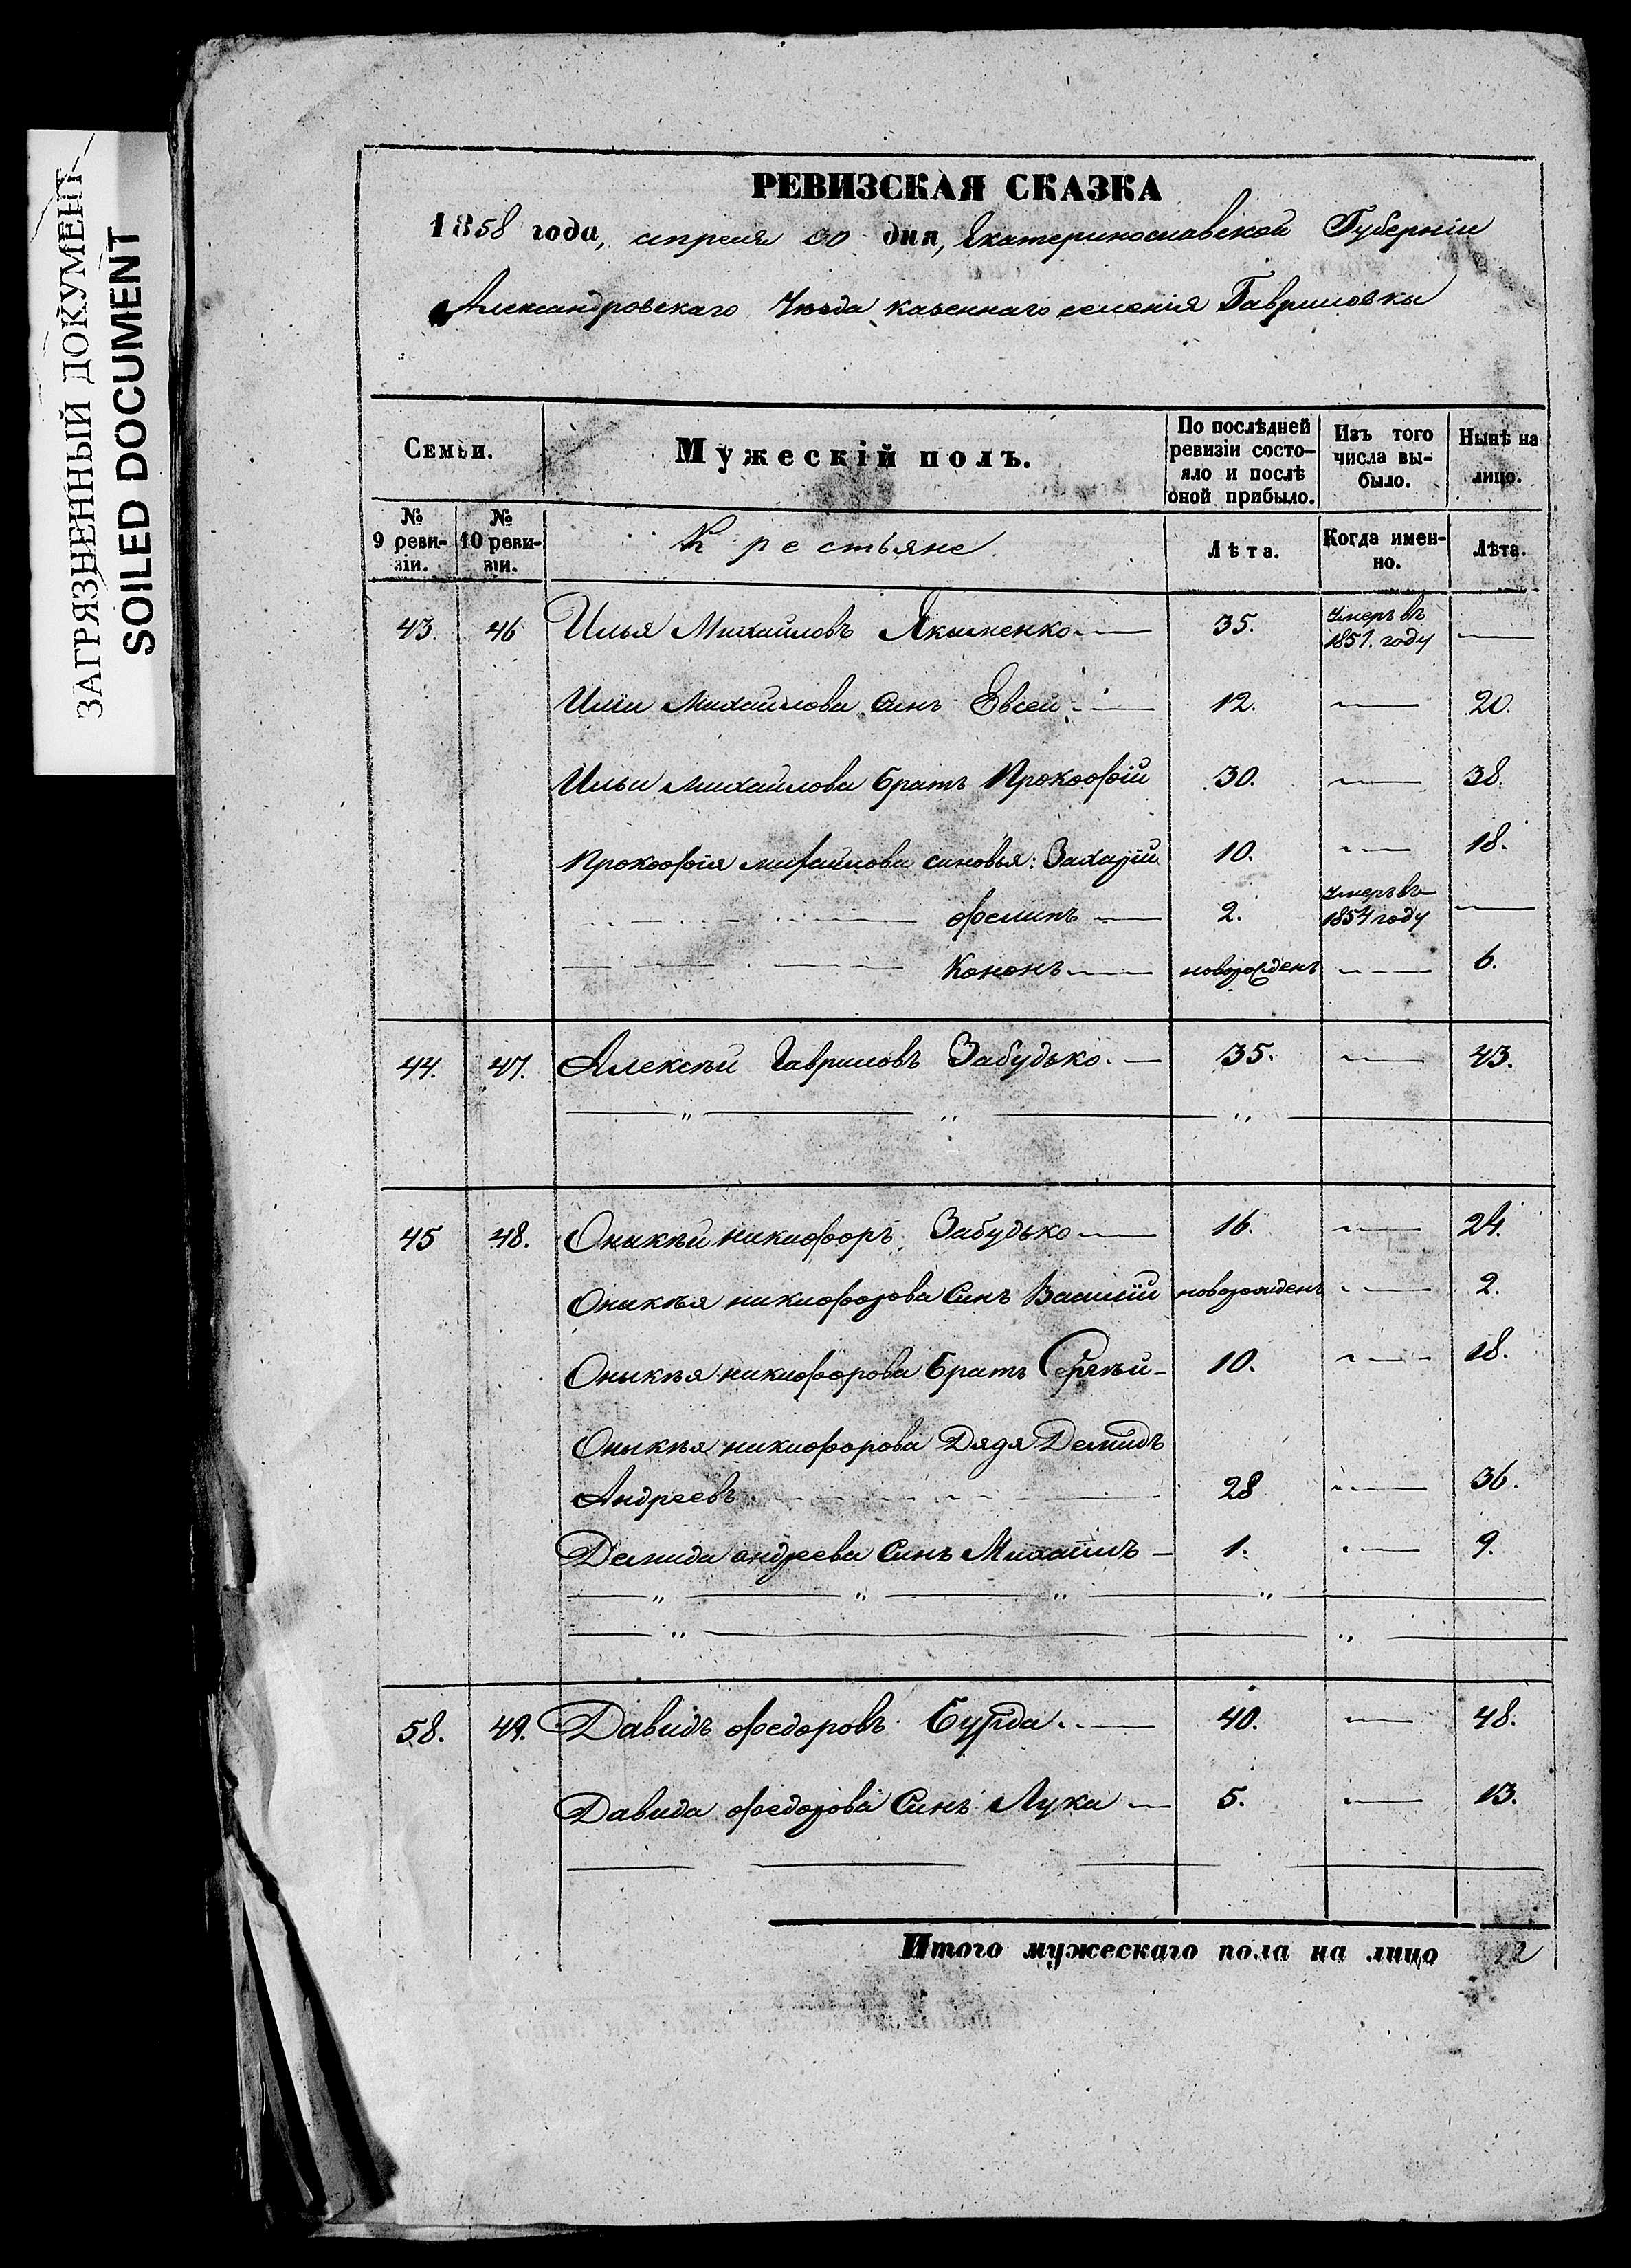 ЗАГРЯЗНЕННЫЙ ДОКУМЕНТ
SOILED DOCUMENT
РЕВИЗСКАЯ СКАЗКА
1858 года, апреля 30 дня, Екатеринославской Губерніи
Александровскаго Уѣзда казеннаго селенія Гавриловки
Семьи. Мужескій полъ. По послѣдней ревизіи состояло и послѣ оной прибыло. Изъ того числа выбыло. Нынѣ на лицо.
№ 9 ревизіи. № 10 ревизіи. Крестьяне Лѣта. Когда именно. Лѣта.
43. 46 Илья Михайловъ Якименко 35. умеръ въ 1851. году
Ильи Михайлова Синъ Евсей 12. 20.
Ильи Михайлова братъ Прокофій 30. 38.
Прокофія михайлова синовья: Захарій 10. 18.
филипъ 2. умеръ въ 1854 году
Кононъ новорожденъ 6.
44. 47. Алексѣй Гавриловъ Забудько. 35. 43.
45 48. Оникѣй никифоръ Забудько 16. 24.
Оникѣя никифорова Синъ Василій новорожденъ 2.
Оникѣя никифорова братъ Сергѣй 10. 18.
Оникѣя никифорова Дядя Демидъ
Андреевъ 28 36.
Демида андреева Синъ Михаилъ 1. 9.
58. 49. Давидъ федоровъ Бурда 40. 48.
Давида федорова Синъ Лука 5. 13.
Итого мужескаго пола на лицо 12